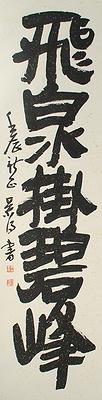 飛泉掛碧峰
壬辰
書